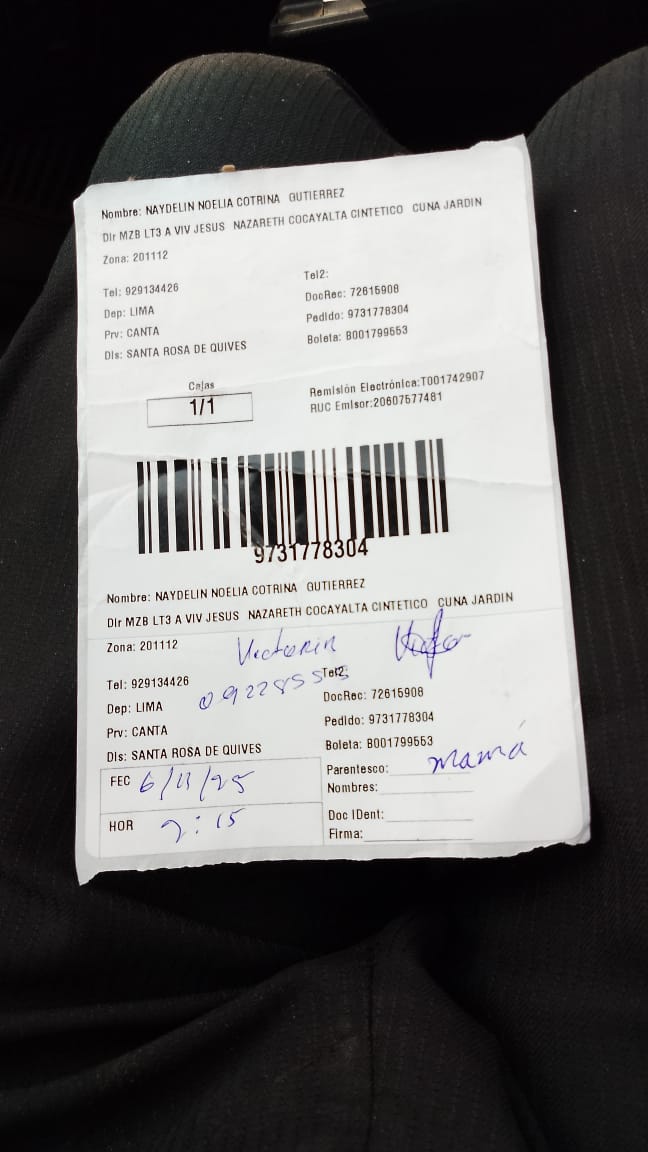 Nombre: NAYDELIN NOELIA COTRINA GUTIERREZ
Dir MZB LT3 A VIV JESUS NAZARETH COCAYALTA CINTETICO CUNA JARDIN
Zona: 201112
Tel: 929134426
Tel2:
Dep: LIMA
DocRec: 72615908
Prv: CANTA
Pedido: 9731778304
Dis: SANTA ROSA DE QUIVES
Boleta: B001799553
Cajas
1/1
Remisión Electrónica:T001742907
RUC Emisor:20607577481
9731778304
Nombre: NAYDELIN NOELIA COTRINA GUTIERREZ
Dir MZB LT3 A VIV JESUS NAZARETH COCAYALTA CINTETICO CUNA JARDIN
Zona: 201112
Tel: 929134426
Tel2
Dep: LIMA
DocRec: 72615908
Prv: CANTA
Pedido: 9731778304
Dis: SANTA ROSA DE QUIVES
Boleta: B001799553
FEC 6/11/25
Parentesco: mamá
Nombres:
HOR 2:15
Doc IDent:
Firma: